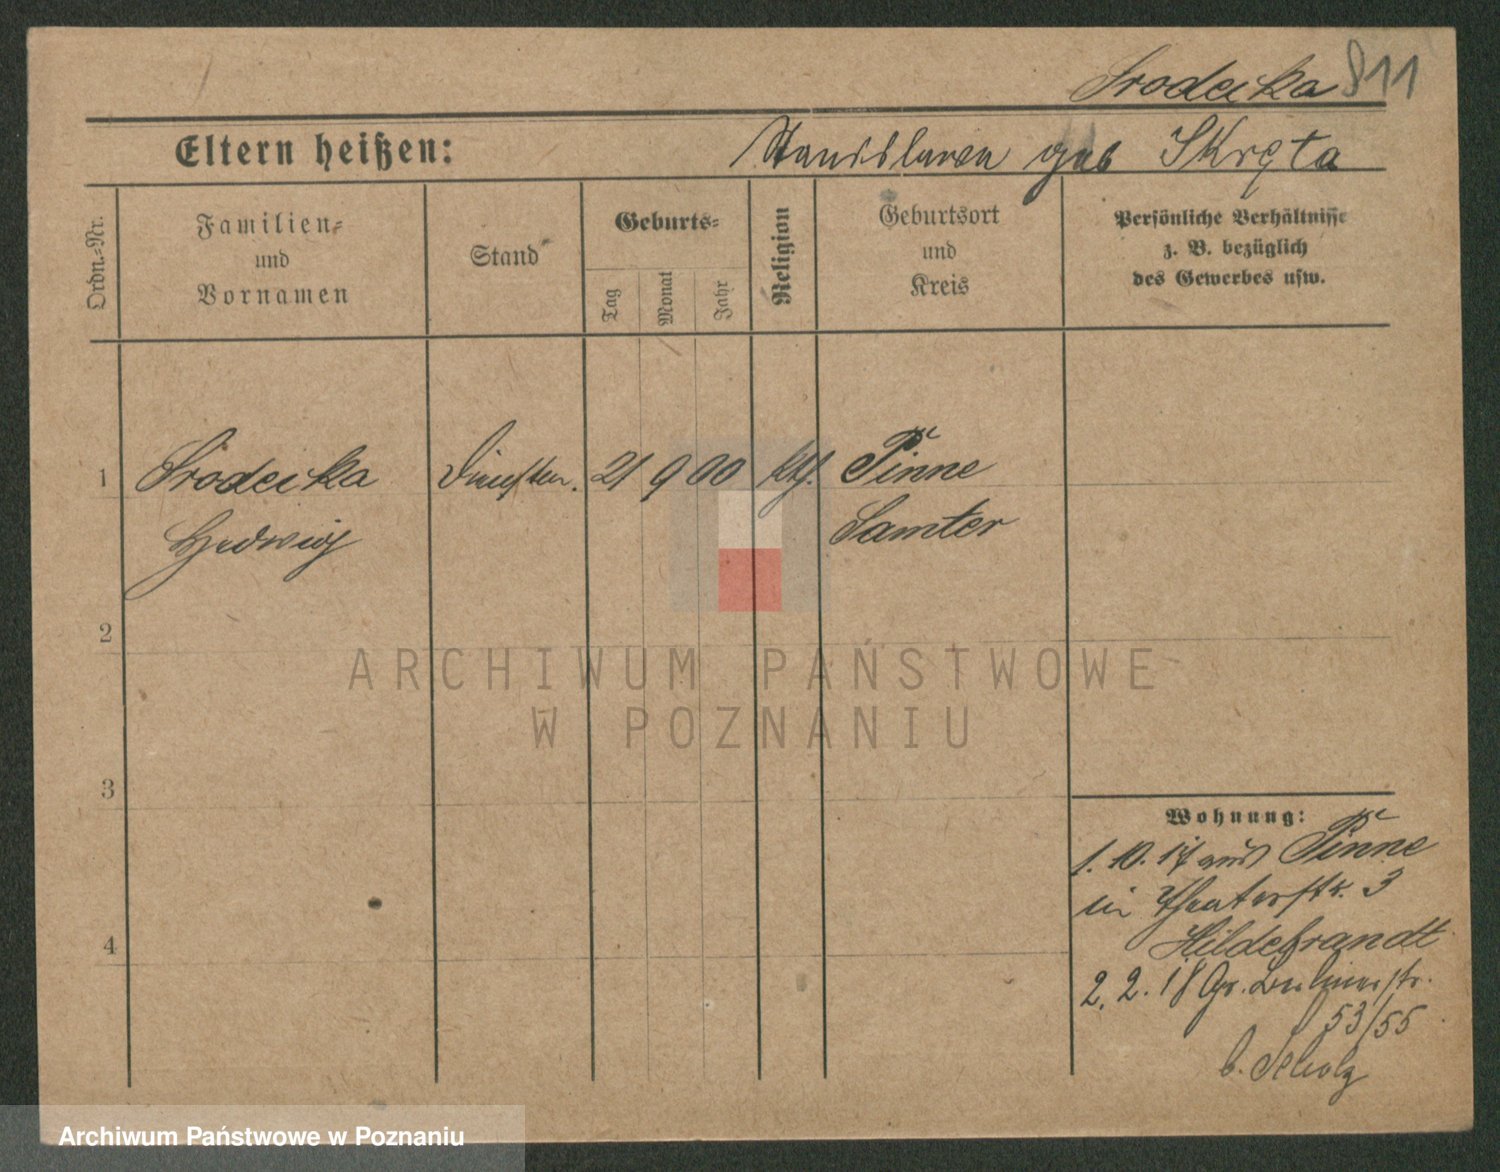 Srodecka 811
Eltern heißen: Stanislawa geb Skręta
Ordn.-Nr.
Familien-
und
Vornamen
Stand
Geburts-
Tag
Monat
Jahr
Religion
Geburtsort
und
Kreis
Persönliche Verhältnisse
z. B. bezüglich
des Gewerbes usw.
1 Srodecka 21 9 00 kth. Pinne
Hedwig Samter
2
3
4
Wohnung:
1. 10. 17 aus Pinne
in Theaterstr. 3
Hildebrandt
2. 2. 18 Gr. Berlinerstr.
53/55
b. Scholz
ARCHIWUM PAŃSTWOWE
W POZNANIU
Archiwum Państwowe w Poznaniu